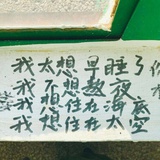 我太想早睡了
我不想熬夜
我想住在海底
我想住在太空
你